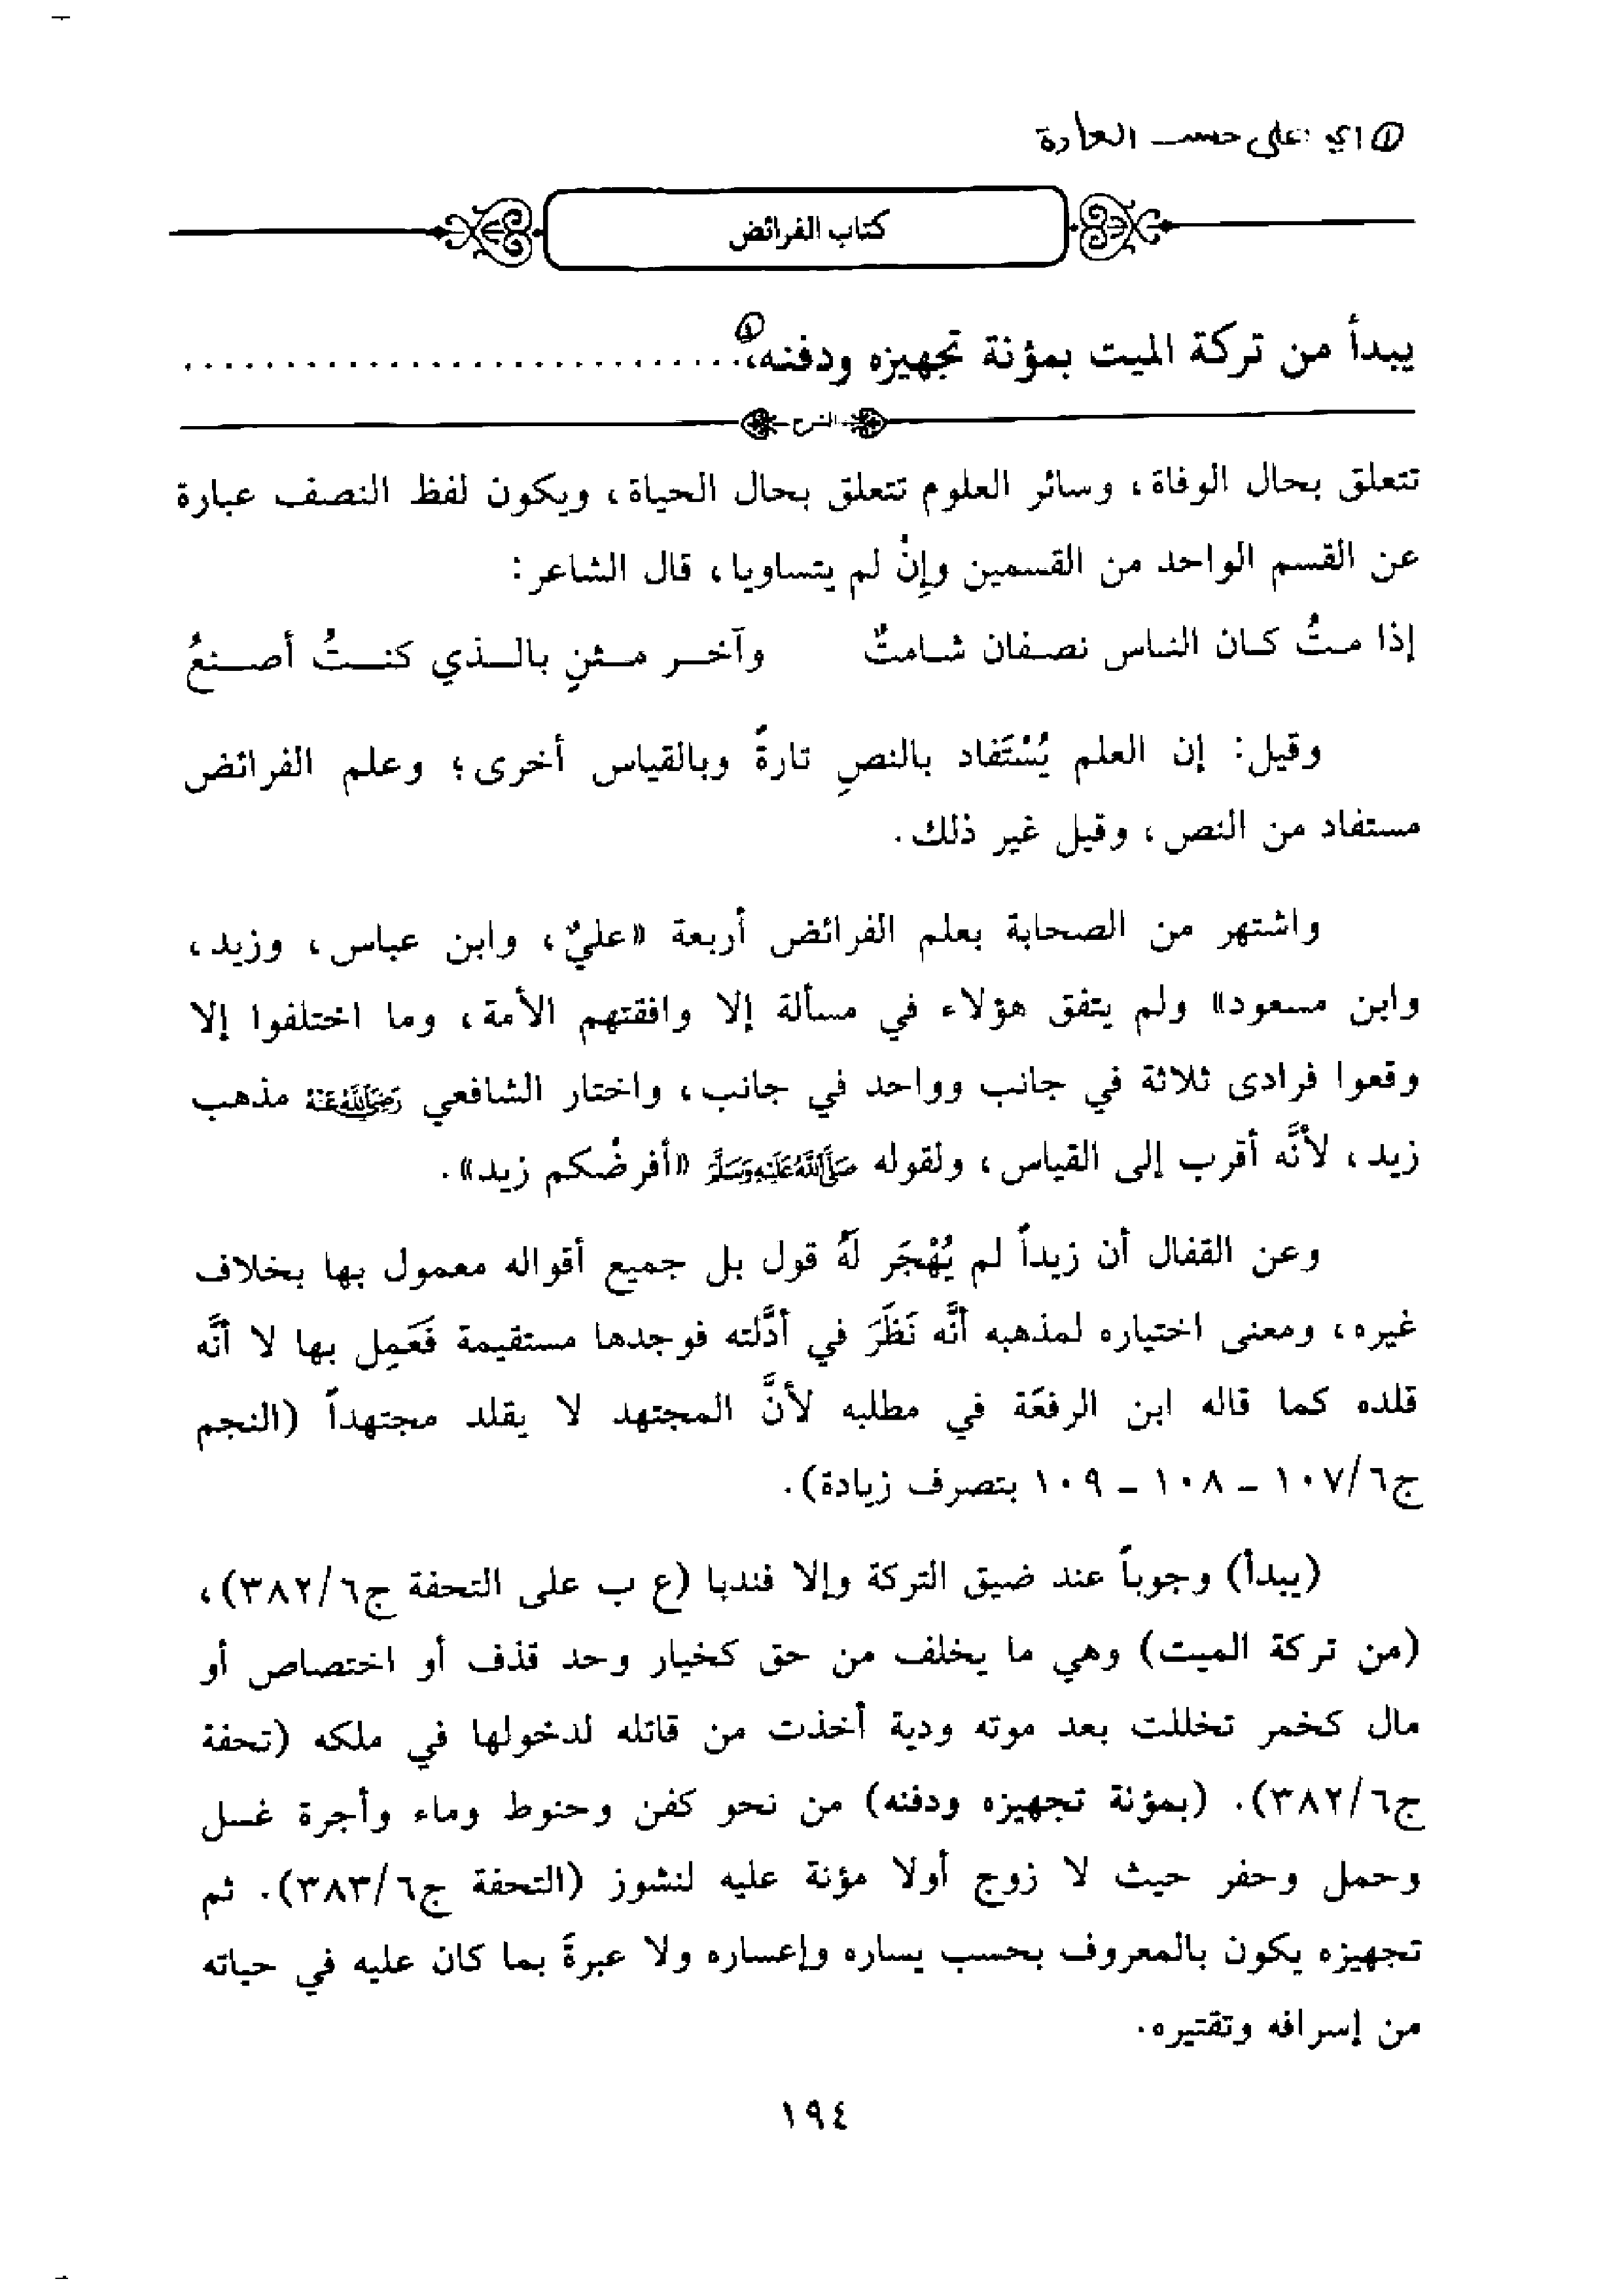 ① اي على حسب العادة
كتاب الفرائض
يبدأ من تركة الميت بمؤنة تجهيزه ودفنه، ① ............................
الشرح
تتعلق بحال الوفاة، وسائر العلوم تتعلق بحال الحياة، ويكون لفظ النصف عبارة
عن القسم الواحد من القسمين وإنْ لم يتساويا، قال الشاعر:
إذا متُّ كان الناس نصفان شامتٌ وآخر مثنٍ بالذي كنتُ أصنعُ
وقيل: إن العلم يُسْتَفاد بالنصِ تارةً وبالقياس أخرى؛ وعلم الفرائض
مستفاد من النص، وقيل غير ذلك.
واشتهر من الصحابة بعلم الفرائض أربعة «عليٌ، وابن عباس، وزيد،
وابن مسعود» ولم يتفق هؤلاء في مسألة إلا وافقتهم الأمة، وما اختلفوا إلا
وقعوا فرادى ثلاثة في جانب وواحد في جانب، واختار الشافعي رَضِيَ اللَّهُ عَنْهُ مذهب
زيد، لأنَّه أقرب إلى القياس، ولقوله صَلَّى اللَّهُ عَلَيْهِ وَسَلَّمَ «أفرضُكم زيد».
وعن القفال أن زيداً لم يُهْجَر لَهُ قول بل جميع أقواله معمول بها بخلاف
غيره، ومعنى اختياره لمذهبه أنَّه نَظَرَ في أدَّلته فوجدها مستقيمة فَعَمِل بها لا أنَّه
قلده كما قاله ابن الرفعَة في مطلبه لأنَّ المجتهد لا يقلد مجتهداً (النجم
ج٦/١٠٧ - ١٠٨ - ١٠٩ بتصرف زيادة).
(يبدأ) وجوباً عند ضيق التركة وإلا فندبا (ع ب على التحفة ج٦/٣٨٢)،
(من تركة الميت) وهي ما يخلف من حق كخيار وحد قذف أو اختصاص أو
مال كخمر تخللت بعد موته ودية أخذت من قاتله لدخولها في ملكه (تحفة
ج٦/٣٨٢). (بمؤنة تجهيزه ودفنه) من نحو كفن وحنوط وماء وأجرة غسل
وحمل وحفر حيث لا زوج أولا مؤنة عليه لنشوز (التحفة ج٦/٣٨٣). ثم
تجهيزه يكون بالمعروف بحسب يساره وإعساره ولا عبرةَ بما كان عليه في حياته
من إسرافه وتقتيره.
١٩٤